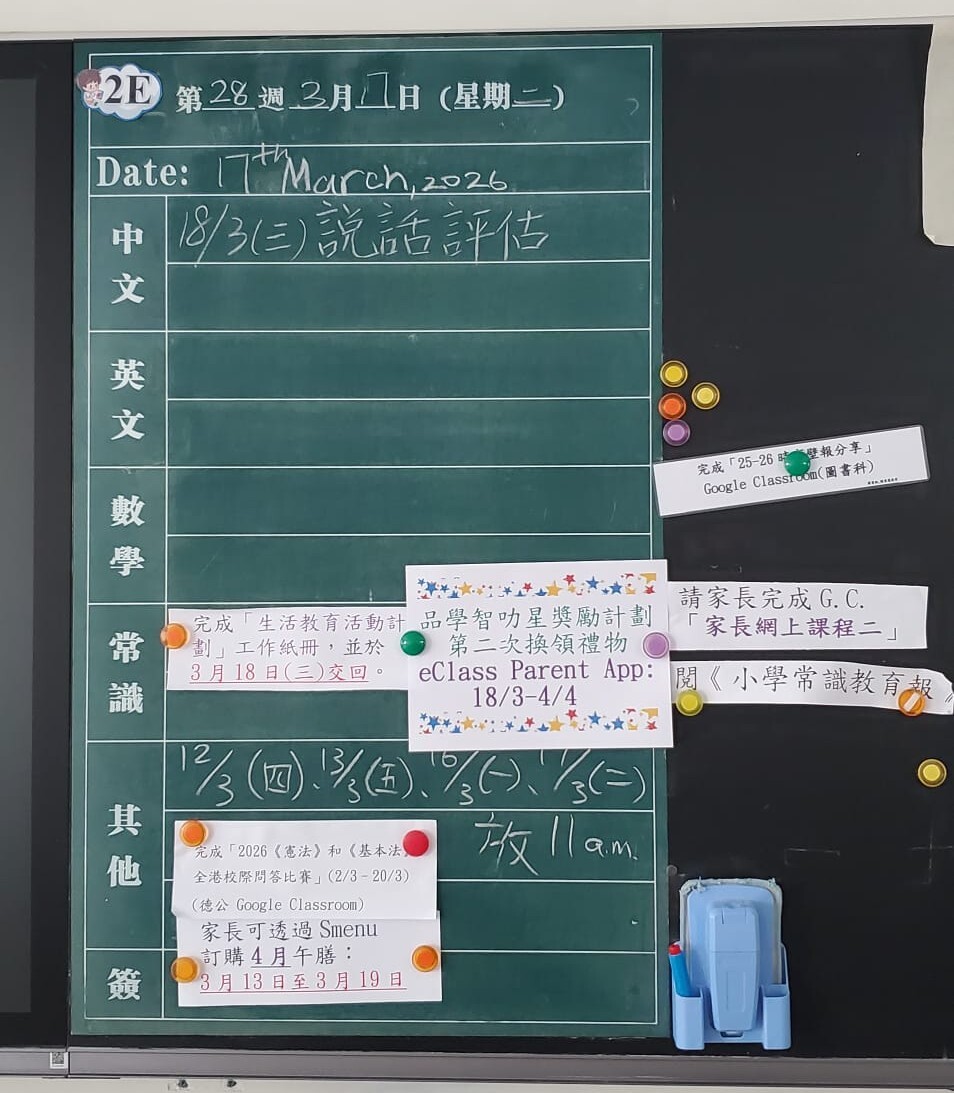 2E 第28週 3月17日 (星期二)
Date: 17th March, 2026
中文
18/3(三)說話評估
英文
數學
完成「25-26 壁報分享」
Google Classroom(圖書科)
常識
完成「生活教育活動計
劃」工作紙冊，並於
3月18日(三)交回。
品學智叻星獎勵計劃
第二次換領禮物
eClass Parent App:
18/3-4/4
請家長完成 G.C.
「家長網上課程二」
閱《小學常識教育報》
其他
12/3(四)、13/3(五)、16/3(一)、17/3(二)
放11a.m.
完成「2026《憲法》和《基本法》
全港校際問答比賽」(2/3-20/3)
(德公 Google Classroom)
家長可透過 Smenu
訂購4月午膳：
3月13日至3月19日
簽